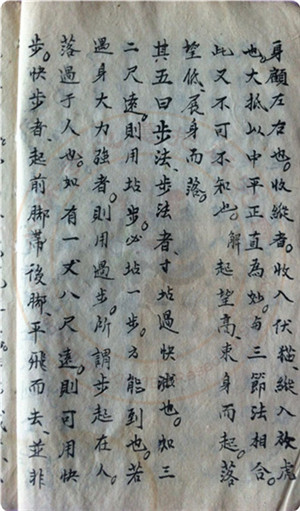 身顧左右也。收縱者。收入伏猫。縱入放虎
也。大抵以中平正直為妙。与三節法相合。
此又不可不知也。解起望高。束身而起。落
望低。展身而落。
其五曰步法。步法者。寸站過快濺也。如三
二尺遠。則用站步。必站一步。方能到也。若
遇身大力強者。則用過步。所謂步起在人。
落過于人也。如有一丈八尺遠。則可用快
步。快步者。起前脚帶後脚。平飛而去。並非